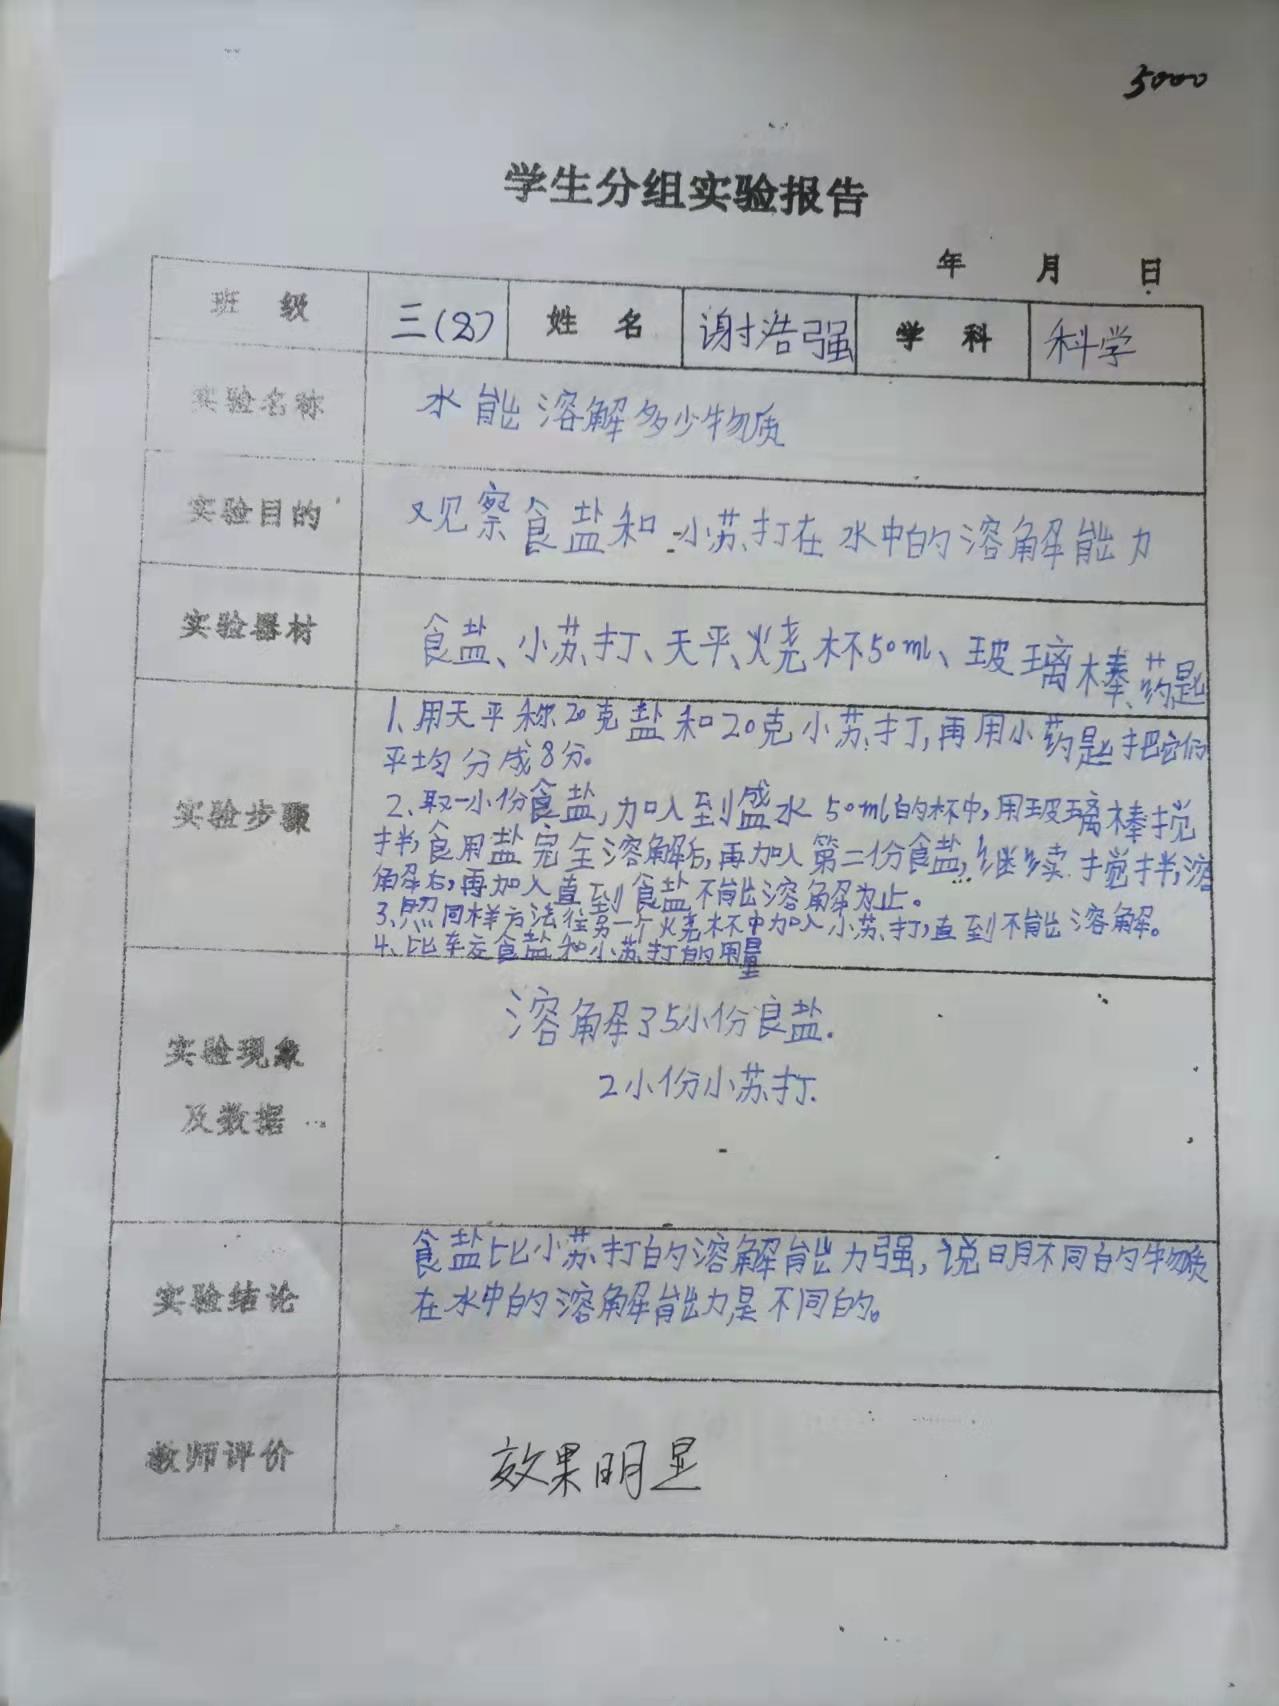 5000
学生分组实验报告
年 月 日
班 级 三(2) 姓 名 谢浩强 学 科 科学
实验名称 水能溶解多少物质
实验目的 观察食盐和小苏打在水中的溶解能力
实验器材 食盐、小苏打、天平、烧杯50ml、玻璃棒、药匙
实验步骤
1、用天平称20克盐和20克小苏打,再用小药匙把它们
平均分成8分。
2、取一小份食盐,加入到盛水50ml的杯中,用玻璃棒搅
拌,食用盐完全溶解后,再加入第二份食盐,继续搅拌,溶
解后,再加入直到食盐不能溶解为止。
3、照同样方法往另一个烧杯中加入小苏打,直到不能溶解。
4、比较食盐和小苏打的用量
实验现象
及数据
溶解了5小份食盐.
2小份小苏打.
实验结论
食盐比小苏打的溶解能力强,说明不同的物质
在水中的溶解能力是不同的。
教师评价 效果明显